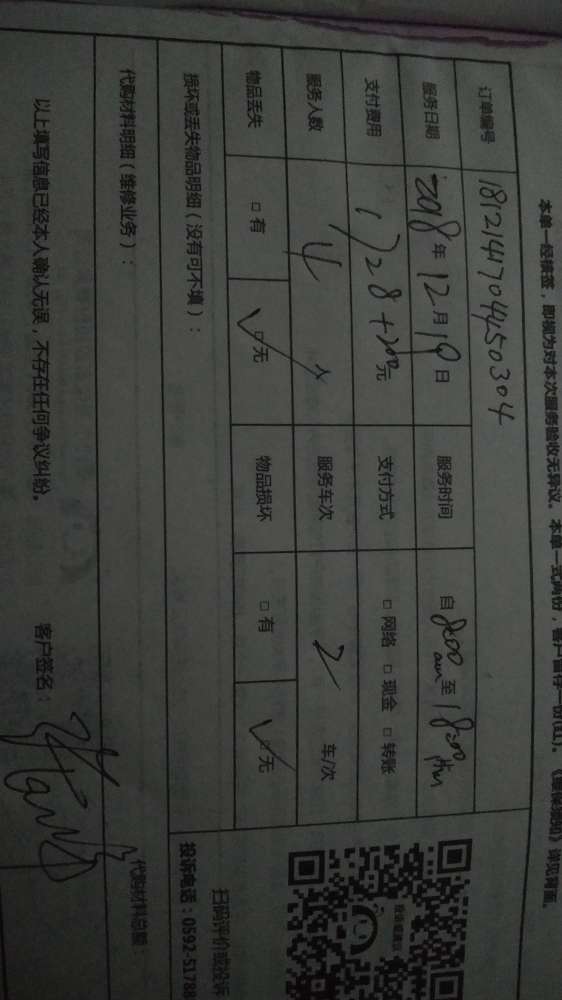 本单一经核签，即视为对本次服务验收无异议。本单一式两份，客户留存一份(红)。
订单编号 181214704450304
服务日期 2018年12月19日 服务时间 自8:00am至18:00pm
支付费用 1728+200元 支付方式 □网络 □现金 □转账
服务人数 4人 服务车次 2 车/次
物品丢失 □有 ✓□无 物品损坏 □有 ✓□无
损坏或丢失物品明细（没有可不填）：
扫码评价或投诉
投诉电话：0592-51788
代购材料明细（维修业务）：
代购材料总额：
以上填写信息已经本人确认无误，不存在任何争议纠纷。
客户签名：